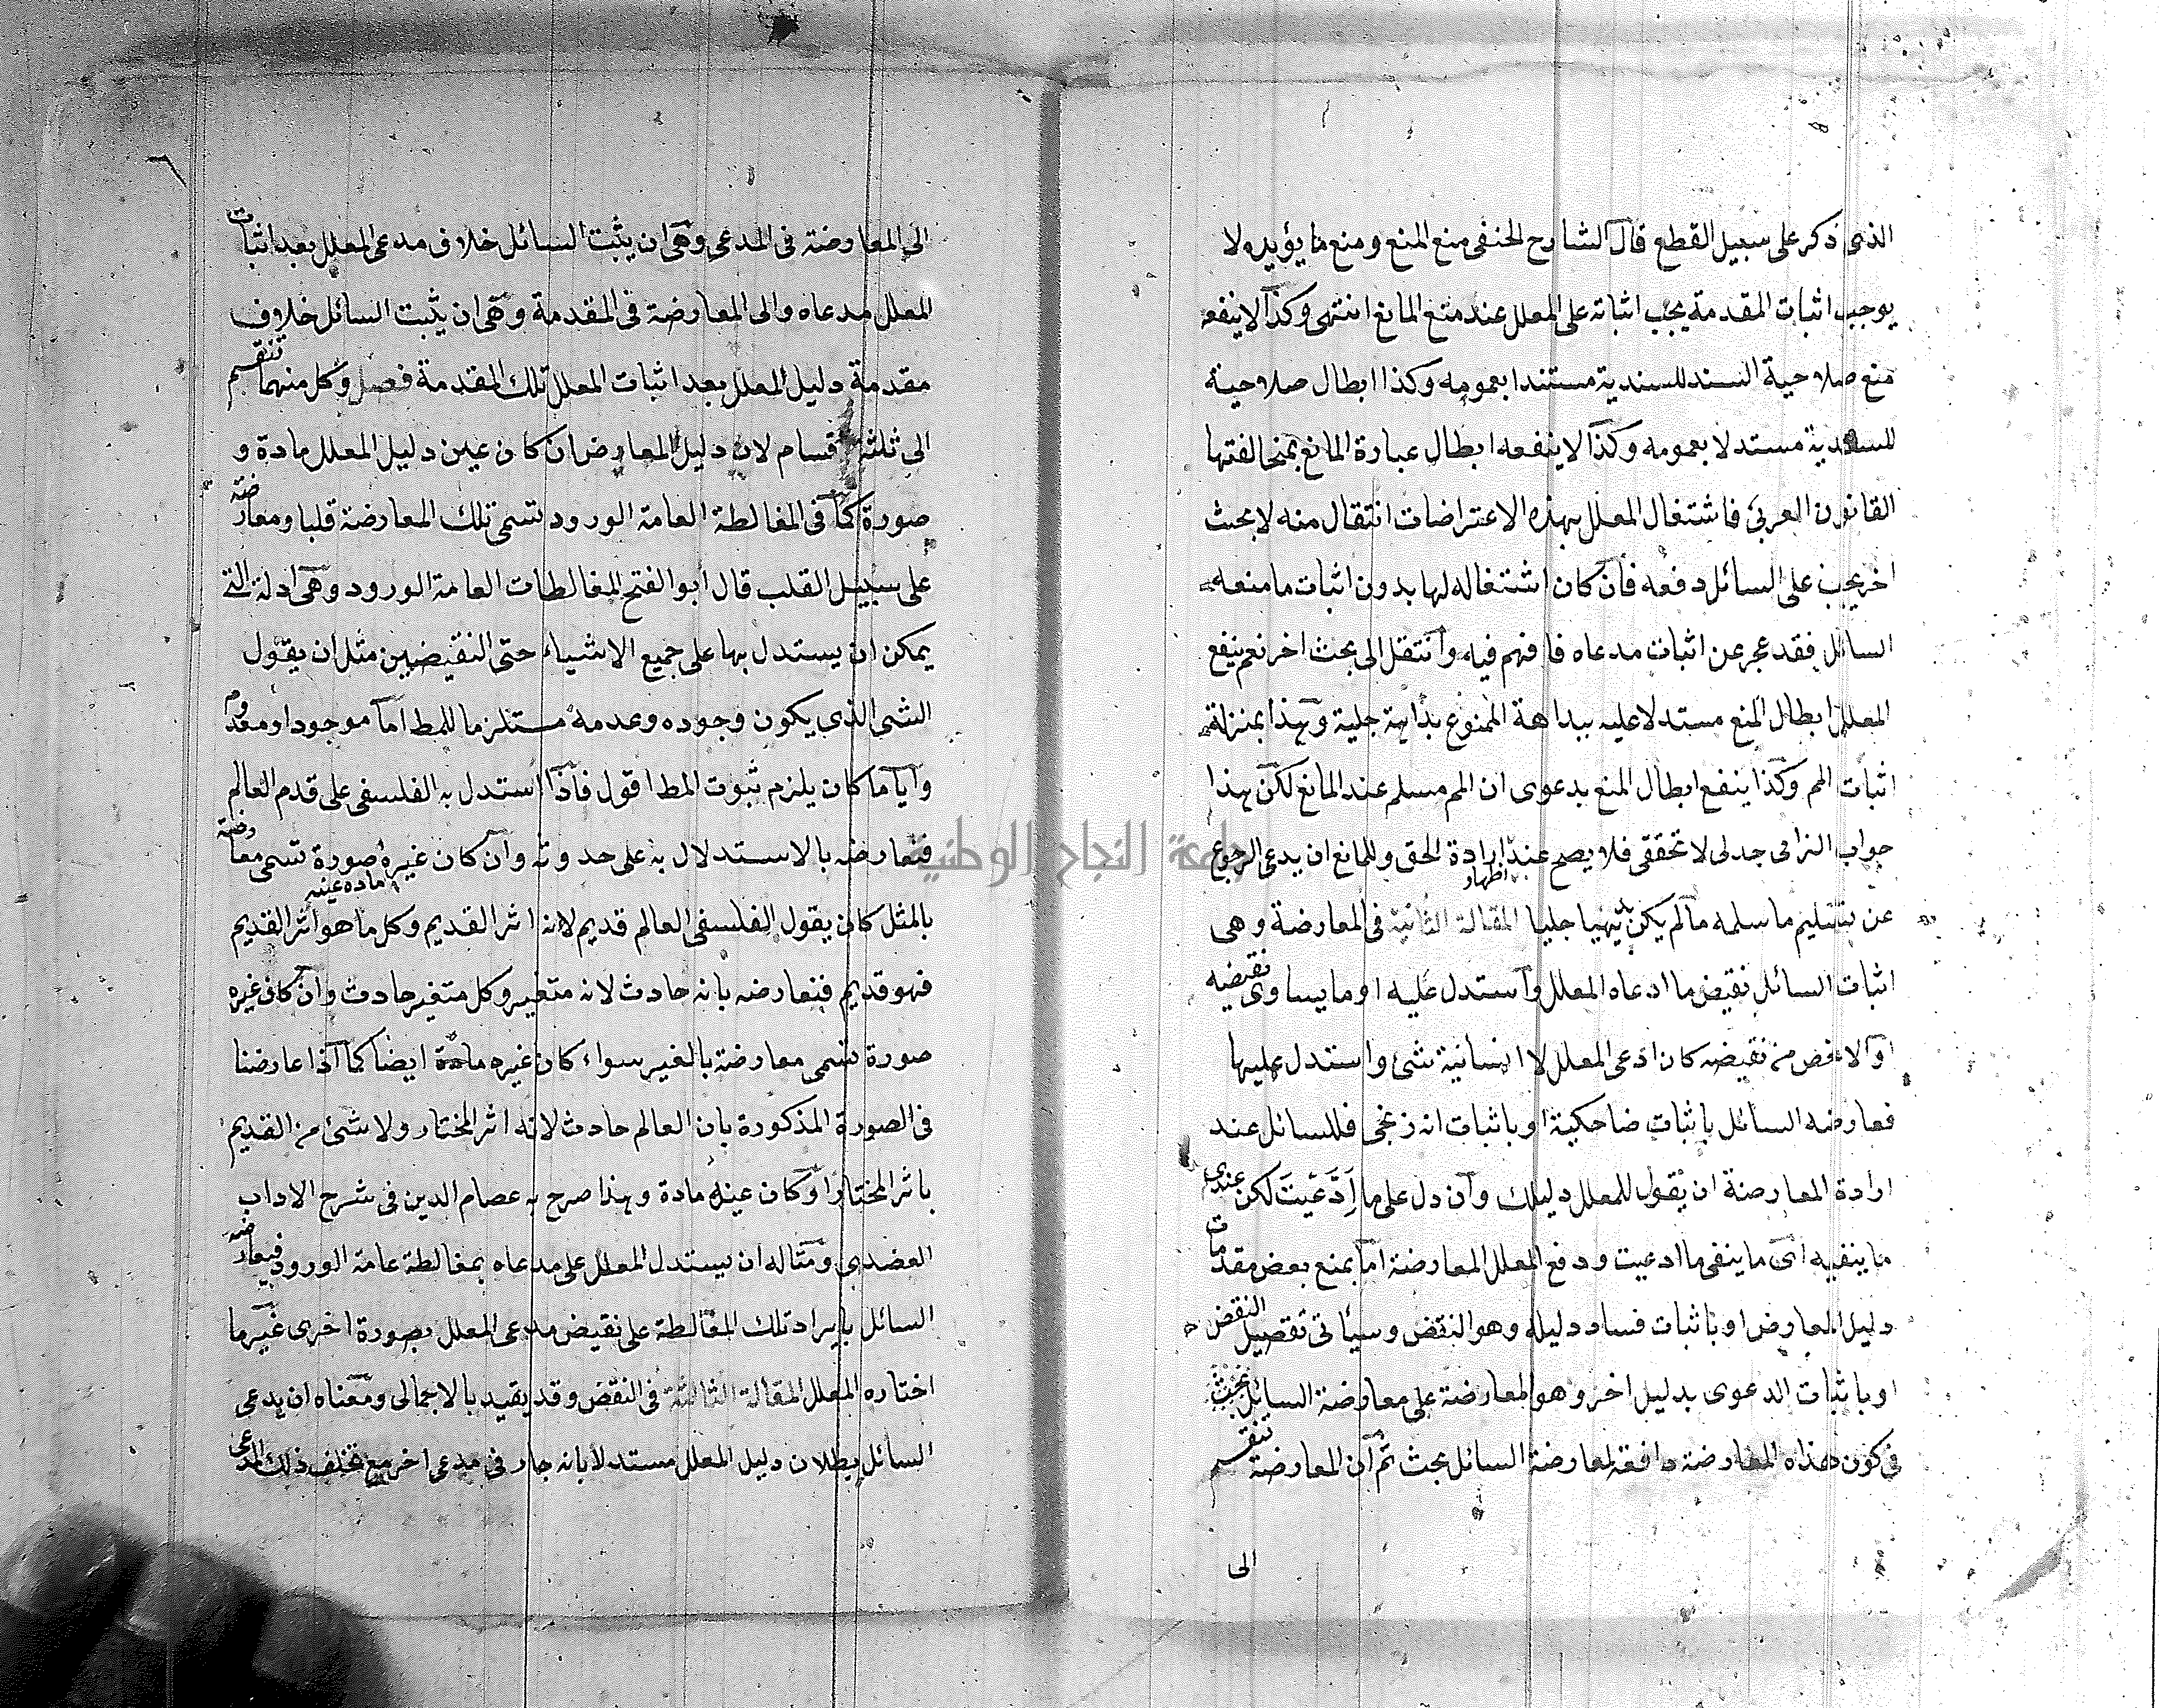 الذى ذكر على سبيل القطع قال الشارح الحنفى منع المنع ومنع ما يؤيده لا
يوجب اثبات المقدمة يجب اثباته على المعلل عند منع المانع انتهى وكذا لا ينفعه
منع صلاحية السند للسندية مستندا بعمومه وكذا ابطال صلاحية
للسندية مستدلا بعمومه وكذا لا ينفعه ابطال عبارة المانع بمخالفتها
القانون العربى فاشتغال المعلل بهذه الاعتراضات انتقال منه لا بحث
اخر يجب على السائل دفعه فان كان اشتغاله لها بدون اثبات ما منعه
السائل فقد عجز عن اثبات مدعاه فافهم فيه وانتقل الى بحث اخر نعم ينفع
المعلل ابطال المنع مستدلا عليه ببداهة الممنوع بداهة جلية وهذا بمنزلة
اثبات المم وكذا ينفع ابطال المنع بدعوى ان المم مسلم عند المانع لكن هذا
جواب الزامى جدلى لا تحققى فلا يصح عند ارادة اظهار الحق وللمانع ان يدعى الرجوع
عن تسليم ما سلمه ما لم يكن بديهيا جليا المقالة الثانية فى المعارضة وهى
اثبات السائل نقيض ما ادعاه المعلل واستدل عليه او ما يساوى نقيضه
او الاخص من نقيضه كان ادعى المعلل لا انسانية شئ واستدل عليها
فعارضه السائل باثبات ضاحكية او باثبات انه زنجى فللسائل عند
ارادة المعارضة ان يقول للمعلل دليلك وان دل على ما ادعيت لكن عندى
ما ينفيه اى ما ينفى ما ادعيت ودفع المعلل المعارضة اما بمنع بعض مقدمات
دليل المعارض او باثبات فساد دليله وهو النقض وسيأتى تفصيل النقض
او باثبات الدعوى بدليل اخر وهو المعارضة على معارضة السائل بحث
فى كون هذه المعارضة دافعة لمعارضة السائل بحث ثم ان المعارضة تنقسم
الى
الى المعارضة فى المدعى وهى ان يثبت السائل خلاف مدعى المعلل بعد اثبات
المعلل مدعاه والى المعارضة فى المقدمة وهى ان يثبت السائل خلاف
مقدمة دليل المعلل بعد اثبات المعلل تلك المقدمة فصل وكل منهما تنقسم
الى ثلثة اقسام لان دليل المعارض ان كان عين دليل المعلل مادة و
صورة كما فى المغالطة العامة الورود تسمى تلك المعارضة قلبا ومعارضة
على سبيل القلب قال ابو الفتح المغالطات العامة الورود وهى ادلة التى
يمكن ان يستدل بها على جميع الاشياء حتى النقيضين مثل ان يقول
الشئ الذى يكون وجوده وعدمه مستلزما للمط اما موجود او معدوم
وايا ما كان يلزم ثبوت المط اقول فاذا استدل به الفلسفى على قدم العالم
فنعارضه بالاستدلال به على حدوثه وان كان غيره مادة عينه صورة تسمى معارضة
بالمثل كان يقول الفلسفى العالم قديم لانه اثر القديم وكل ما هو اثر القديم
فهو قديم فنعارضه بانه حادث لانه متغير وكل متغير حادث وان كان غيره
صورة تسمى معارضة بالغير سواء كان غيره مادة ايضا كما اذا عارضنا
فى الصورة المذكورة بان العالم حادث لانه اثر المختار ولا شئ من القديم
باثر المختار او كان عينه مادة وهذا صرح به عصام الدين فى شرح الاداب
العضدى ومثاله ان يستدل المعلل على مدعاه بمغالطة عامة الورود فيعارضه
السائل بايراد تلك المغالطة على نقيض مدعى المعلل بصورة اخرى غير ما
اختاره المعلل المقالة الثالثة فى النقض وقد يقيد بالاجمالى ومعناه ان يدعى
السائل بطلان دليل المعلل مستدلا بانه جار فى مدعى اخر مع تخلف ذلك المدعى
جامعة النجاح الوطنية